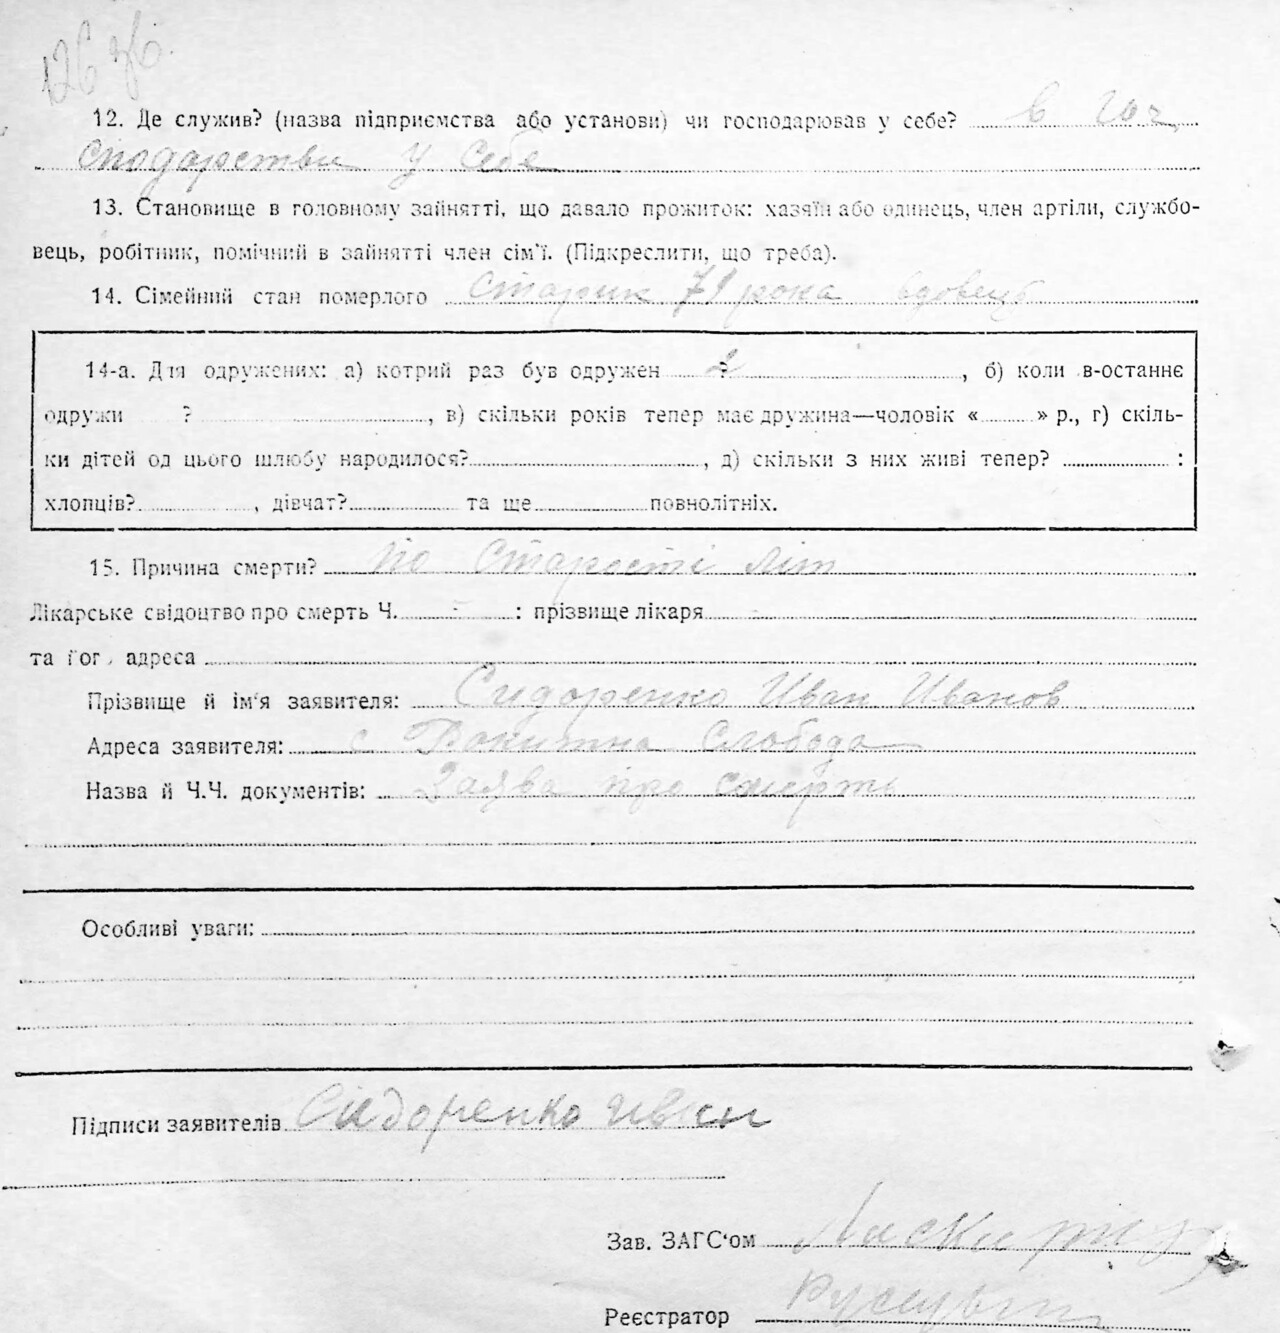 126 зв.
12. Де служив? (назва підприємства або установи) чи господарював у себе? в гос
сподарстви У Себе
13. Становище в головному зайнятті, що давало прожиток: хазяїн або одинець, член артіли, службо-
вець, робітник, помічний в зайнятті член сім'ї. (Підкреслити, що треба).
14. Сімейний стан померлого Старик 71 рока вдовець
14-а. Для одружених: а) котрий раз був одружен ?, б) коли в-останнє
одружи ?, в) скільки років тепер має дружина—чоловік « » р., г) скіль-
ки дітей од цього шлюбу народилося?, д) скільки з них живі тепер? :
хлопців?, дівчат? та ще повнолітніх.
15. Причина смерти? По Старости літ
Лікарське свідоцтво про смерть Ч. - : прізвище лікаря -
та його адреса
Прізвище й ім'я заявителя: Сидоренко Иван Иванов
Адреса заявителя: с Рокитна Слобода
Назва й Ч.Ч. документів: Заява про смерть
Особливі уваги:
Підписи заявителів Сидоренко Иван
Зав. ЗАГС'ом
Реєстратор